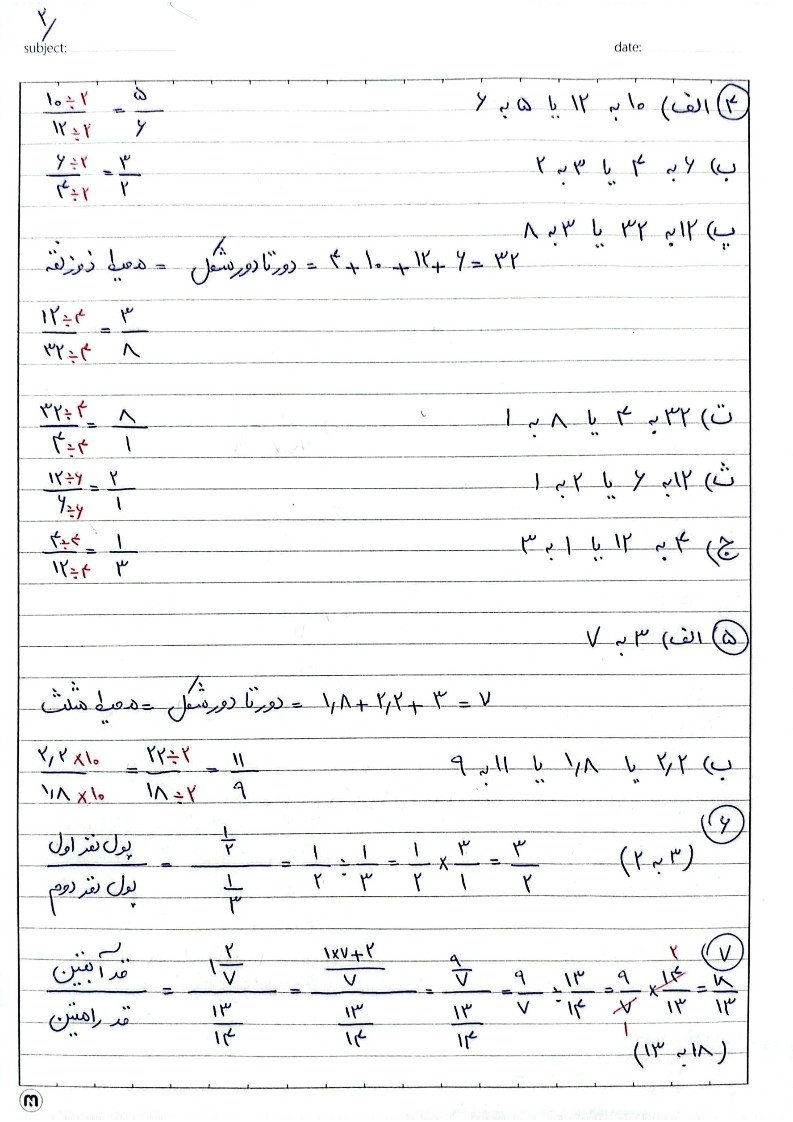 ۲/
subject:
date:
۴) الف) ۱۰ به ۱۲ یا ۵ به ۶ ۱۰÷۲/۱۲÷۲ = ۵/۶
ب) ۶ به ۴ یا ۳ به ۲ ۶÷۲/۴÷۲ = ۳/۲
پ) ۱۲ به ۳۲ یا ۳ به ۸
محیط ذوزنقه = دور تا دور شکل = ۴+۱۰+۱۲+۶=۳۲
۱۲÷۴/۳۲÷۴ = ۳/۸
ت) ۳۲ به ۴ یا ۸ به ۱ ۳۲÷۴/۴÷۴ = ۸/۱
ث) ۱۲ به ۶ یا ۲ به ۱ ۱۲÷۶/۶÷۶ = ۲/۱
ج) ۴ به ۱۲ یا ۱ به ۳ ۴÷۴/۱۲÷۴ = ۱/۳
۵) الف) ۳ به ۷
محیط مثلث = دور تا دور شکل = ۱٫۸+۲٫۲+۳=۷
ب) ۲٫۲ یا ۱٫۸ یا ۱۱ به ۹ ۲٫۲×۱۰/۱٫۸×۱۰ = ۲۲÷۲/۱۸÷۲ = ۱۱/۹
۶)
پول نفر اول/پول نفر دوم = ۱/۲ / ۱/۳ = ۱/۲ ÷ ۱/۳ = ۱/۲ × ۳/۱ = ۳/۲ (۳ به ۲)
۷)
قد آبتین/قد رامتین = ۱ ۲/۷ / ۱۳/۱۴ = ۱×۷+۲/۷ / ۱۳/۱۴ = ۹/۷ / ۱۳/۱۴ = ۹/۷ ÷ ۱۳/۱۴ = ۹/۷ × ۱۴/۱۳ = ۱۸/۱۳
۲
۱
(۱۸ به ۱۳)
m